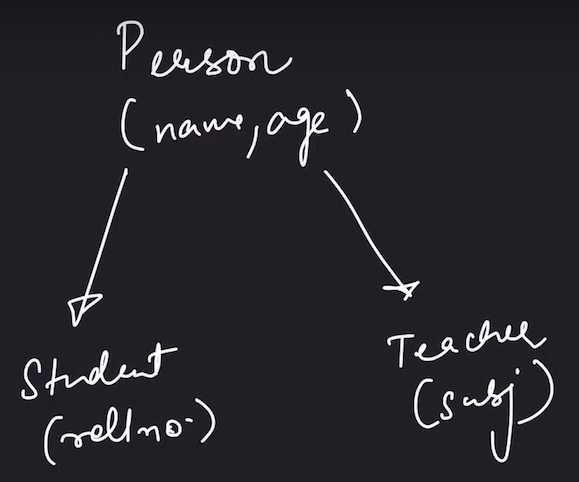 Person
(name, age)
Student
(rollno.)
Teacher
(subj)